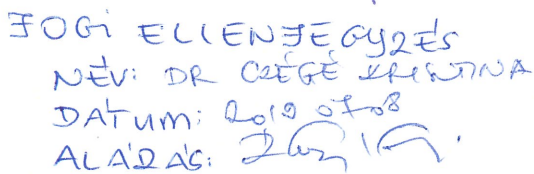 JOGI ELLENJEGYZÉS
NÉV: DR CZÉGÉ KRISZTINA
DÁTUM: 2019 07 08
ALÁÍRÁS: